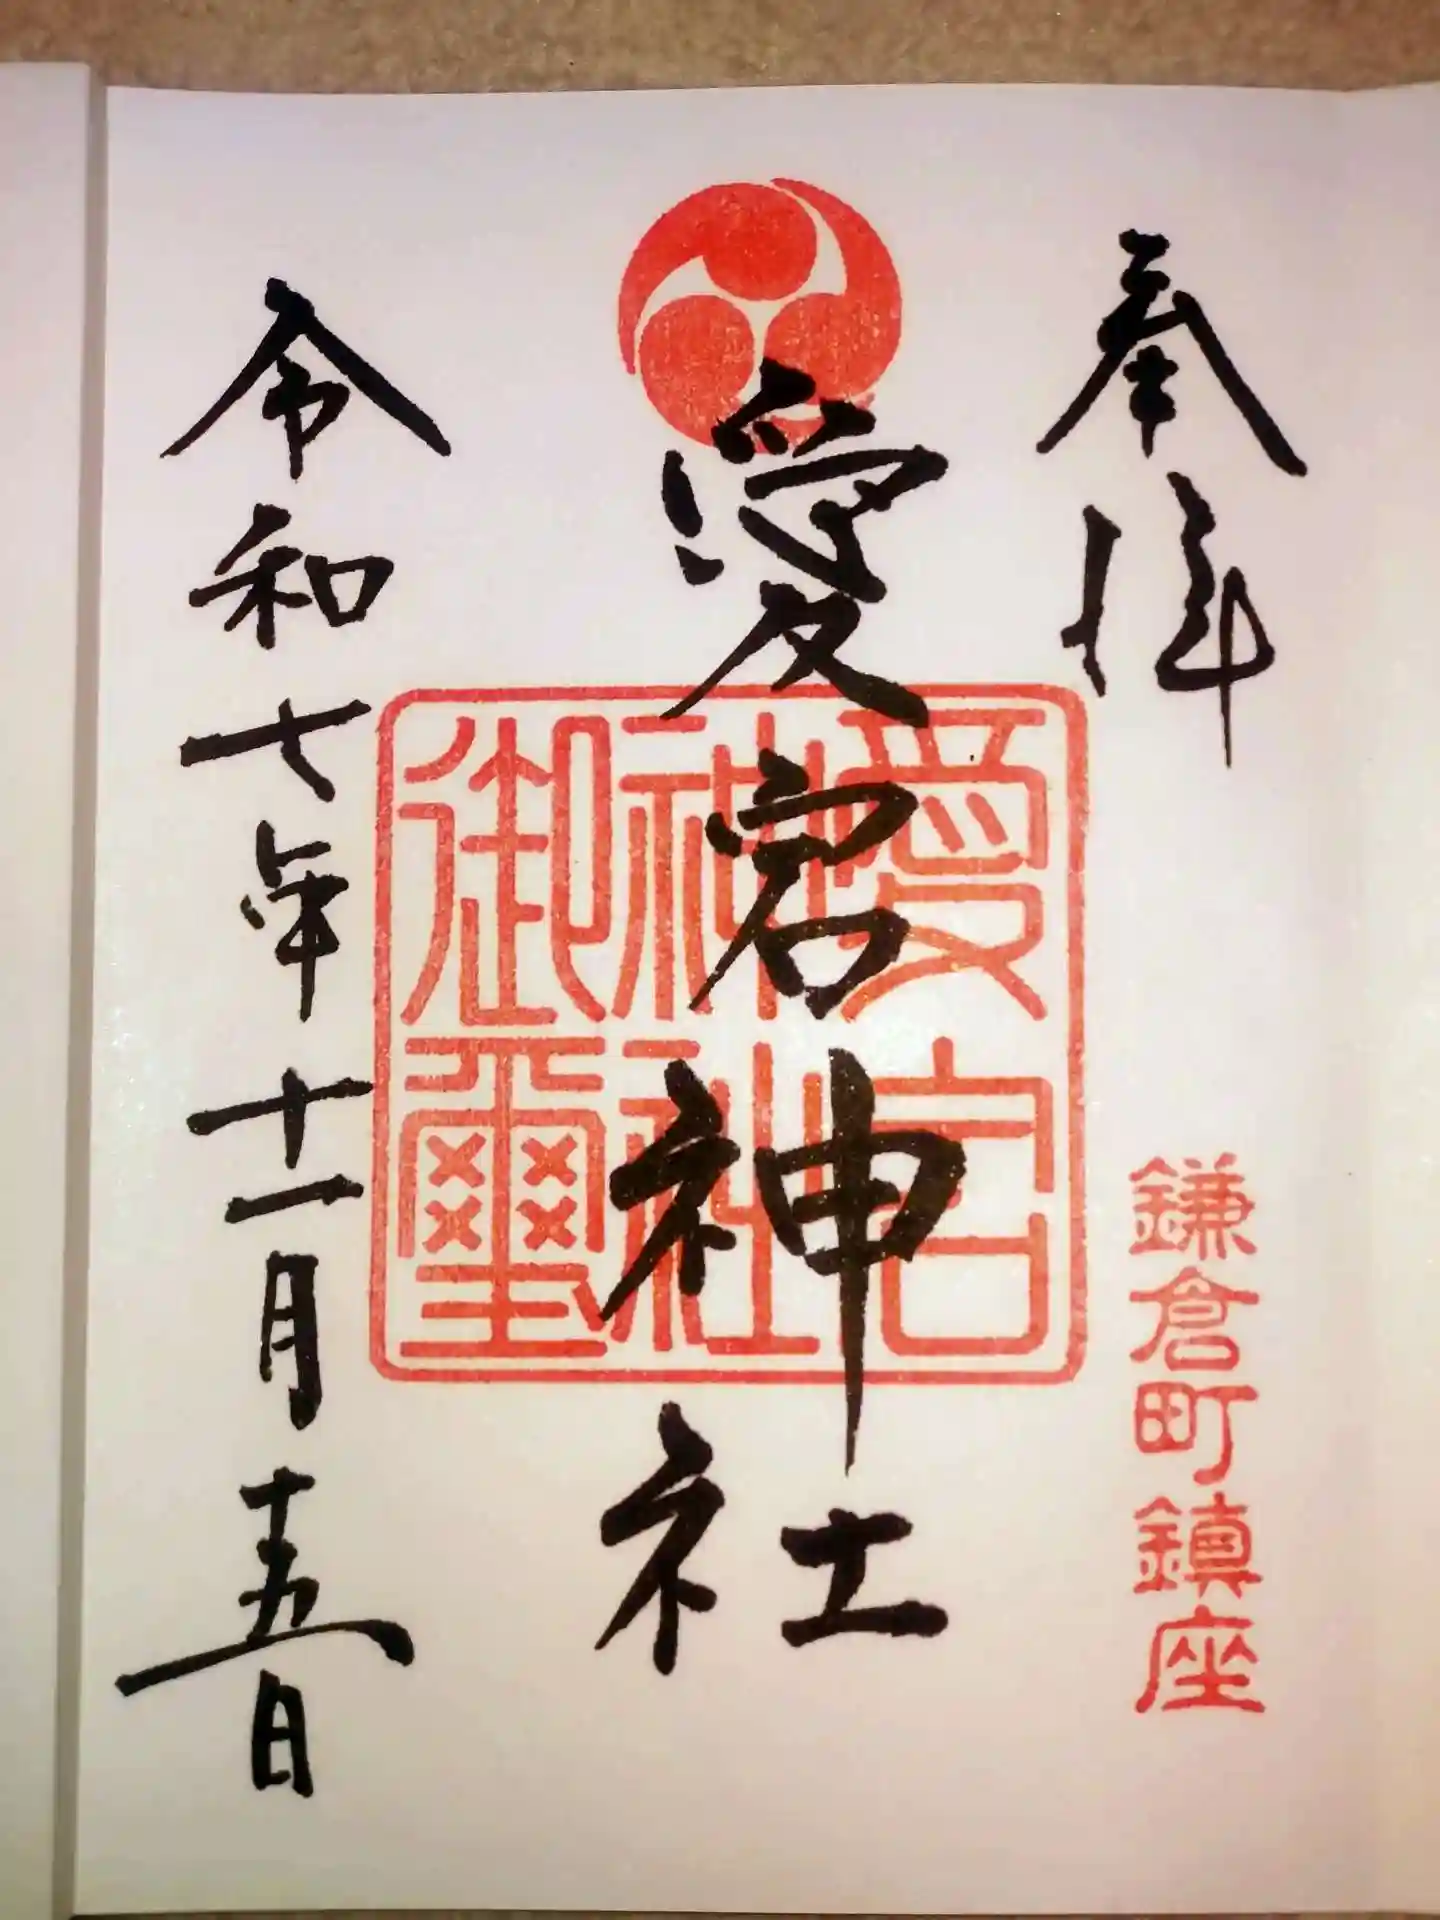 奉拝
鎌倉町鎮座
愛宕神社
愛宕
神社
御璽
令和七年十一月十五日